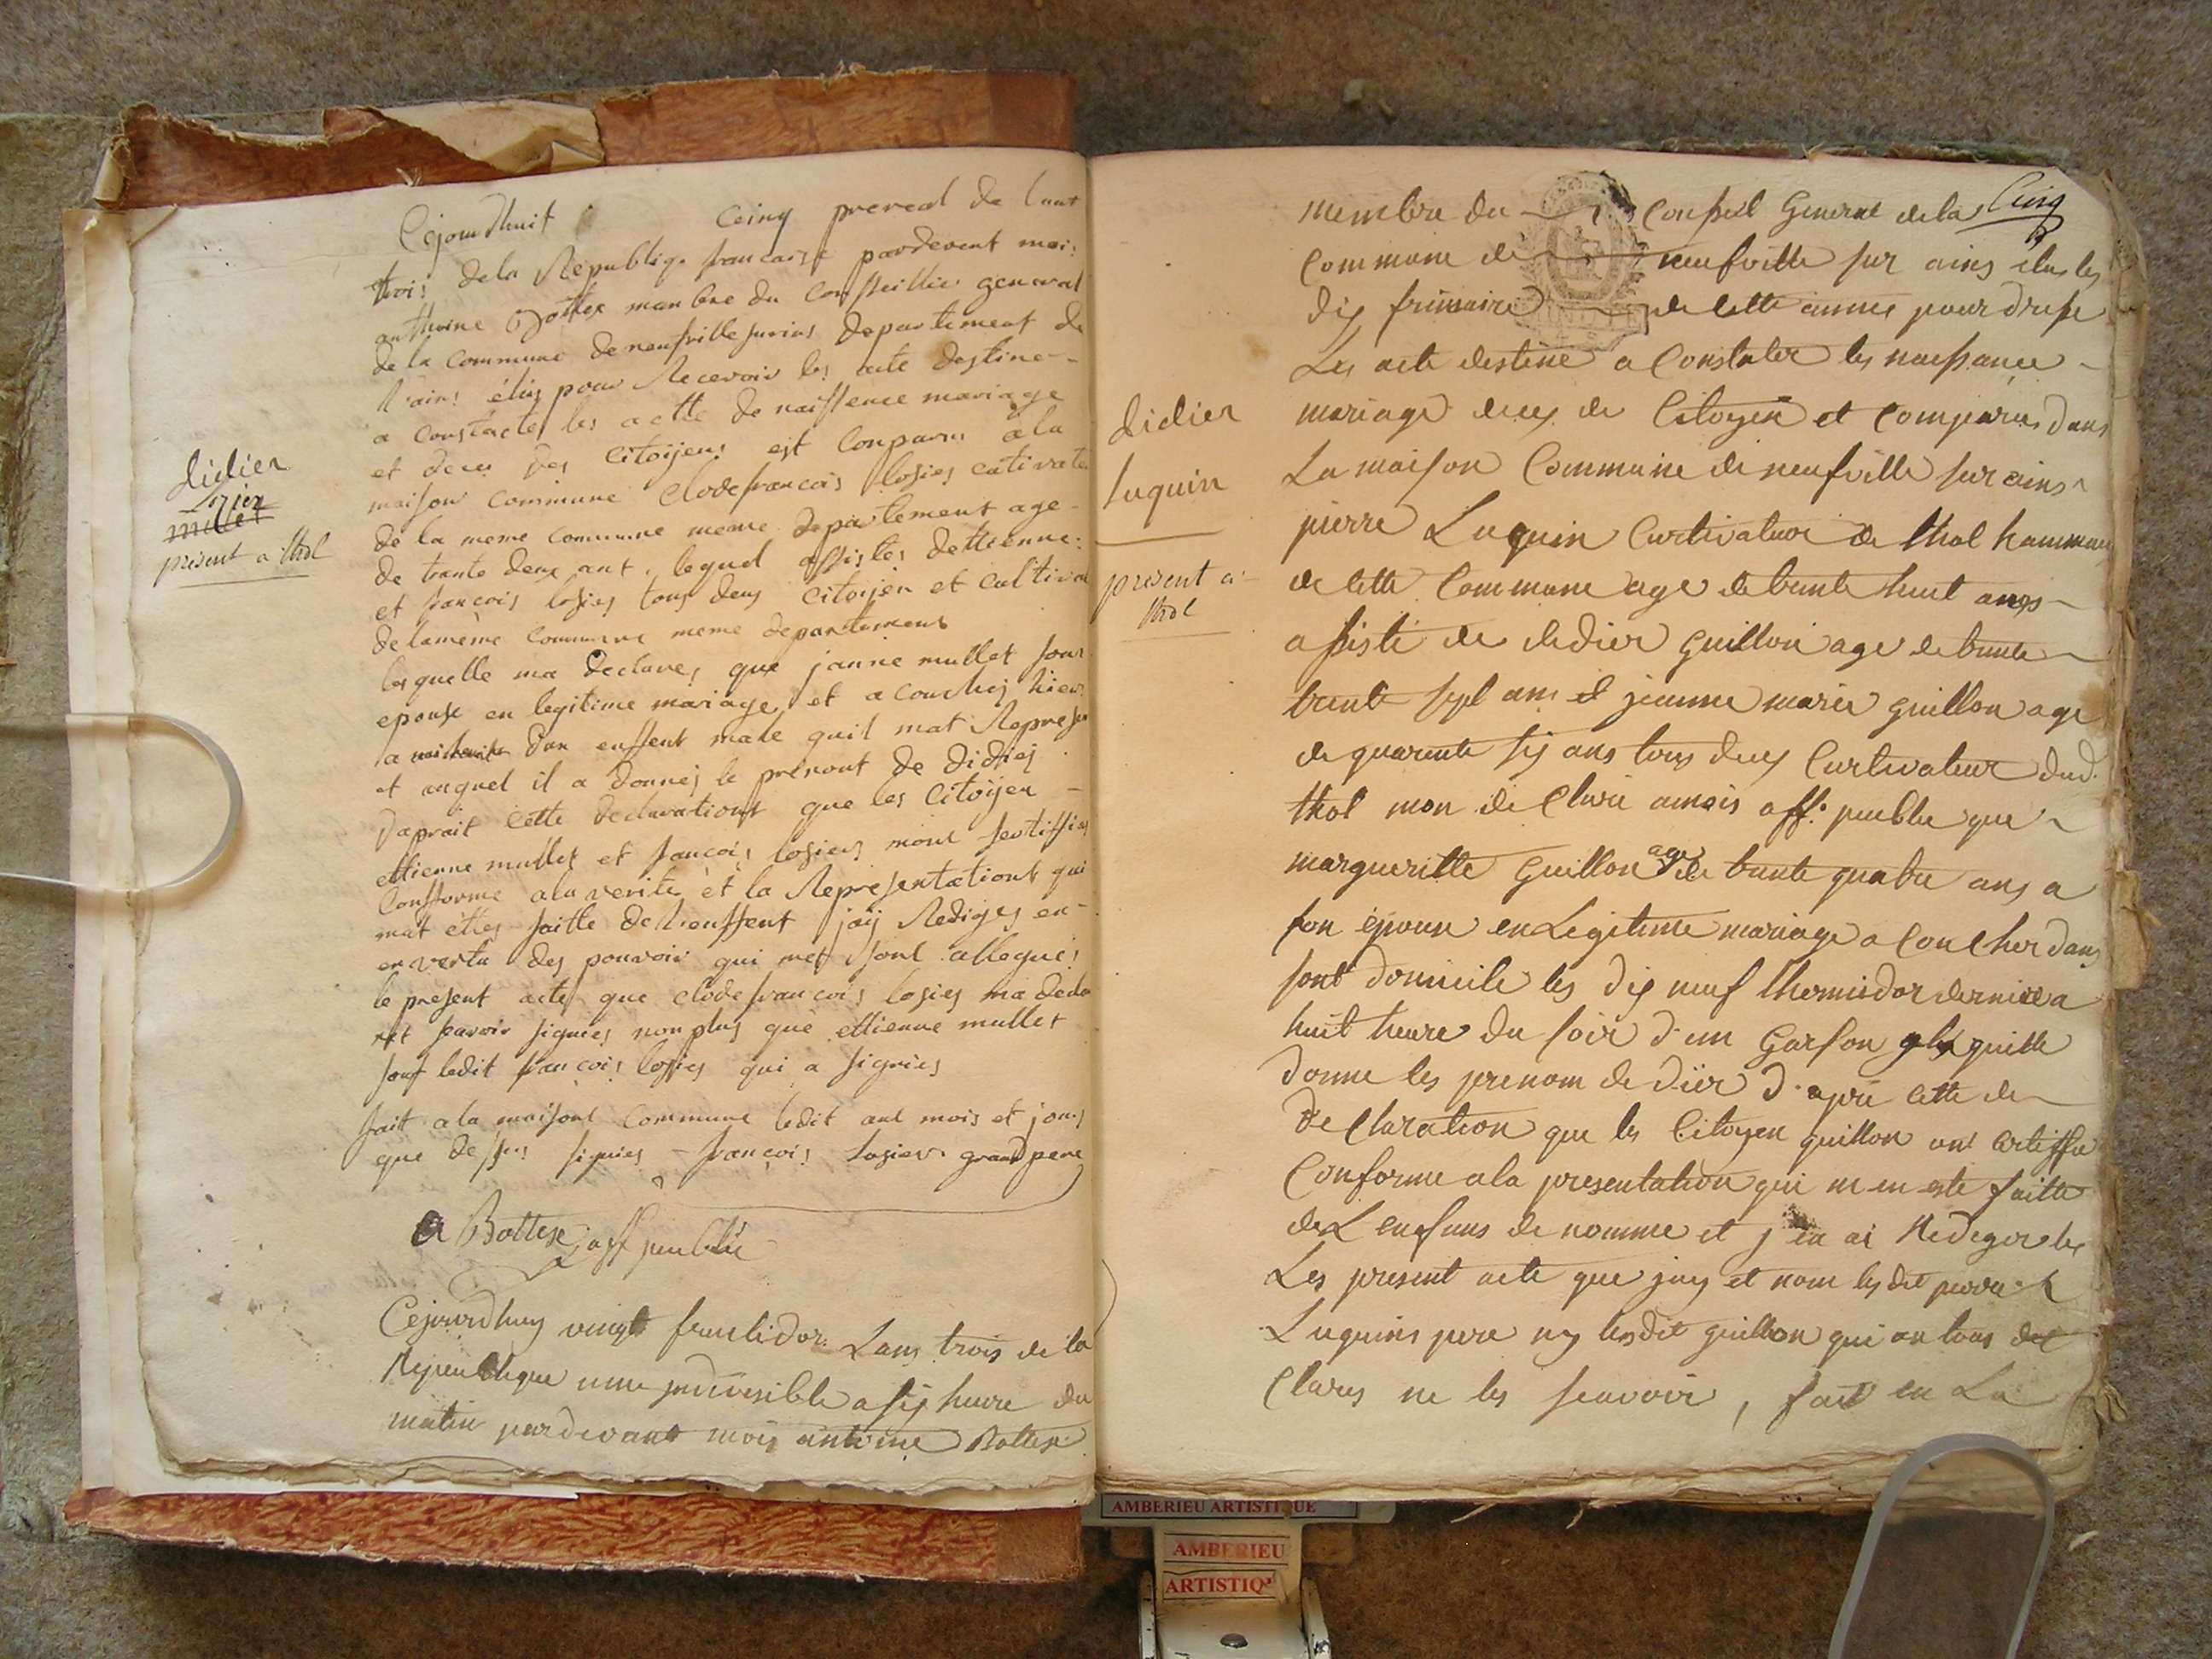 Cejourdhuit ceinq prereal de lant
trois de la Republiqe francaisse pardevent moi
anthoine Bottex manbre du Consseillie general
de la Commune de neufville surins departement de
l'ains élus pour Recevoir les acte destine
a constacter les actte de naisssence mariage
et deces des Citoijens est Conparus a la
maison commune Clodefrancois losier
de la meme commune meme departement age
de trante deux ant. lequel assistes dettienne
et francois losies tous deux Citoijen et
de lamême commune meme departement
lesquelle ma declares que janne mullet
epouse en legitime mariage et a couches hier
a dun enffent male quil mat
et auquel il a donnés le prénont de didies
daprait cette declarationt que les Citoijen
ettienne mullet et francois losies mont
Consforme a la verite et la Representationt qui
mat ettes faitte de lienffent jaij Rediges en
en vertu des pouvoir qui mes sont allegués
le present acte que clodefrancois losies ma
savoir signies non plus que ettienne mullet
souf ledit francois losies qui a signies
fait a la maisont Commune ledit ant mois et jours
que dessus signies - francois losier grand pere
a Bottex off peublic
Cejourdhuy vingt fructidor Lans trois de la
Republique une indivisible a six heure du
matin pardevant moi antoine Bottex
didier
losier
millet
présent a thol
Cinq
membre du Conseil General de la
Commune de neufville sur ains elus les
dix frimaire de cette annes pour
Les acte destiné a Constater les naissance
mariage deces de Citoyen et comparus dans
La maison Commune de neufville sur ains
pierre Luquin Curtivateur de thol hammaux
de cette Commune age de trente huit ans
assisté de didier guillon age de trente
trente sept ans et jeanne marie guillon age
de quarente six ans tous deux Curtivateur dud.
thol mon de Claré amois off. peublic que
margueritte guillon age de trente quatre ans a
son épouse en Legitime mariage a Coucher dans
sont domicile les dix neuf thermidor dernier a
huit heure du soir d'un garson quitte
donne les prenom de dier d'apre cette de
de Claration que les Citoyen guillon on certiffie
Conforme a la presentation qui m'en este faitte
de L'enfans de nomme et j'en ai Rediger les
Les present acte que juy et nom les dit pierre
Luquins pere ny les dit guillon qui on tous de
Clares ne les scavoir, fait en La
didier
luquin
présent a
thol
AMBERIEU ARTISTIQUE
AMBERIEU
ARTISTIQ